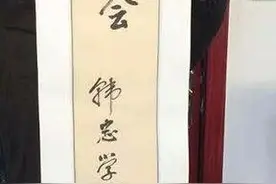 会
韩忠学